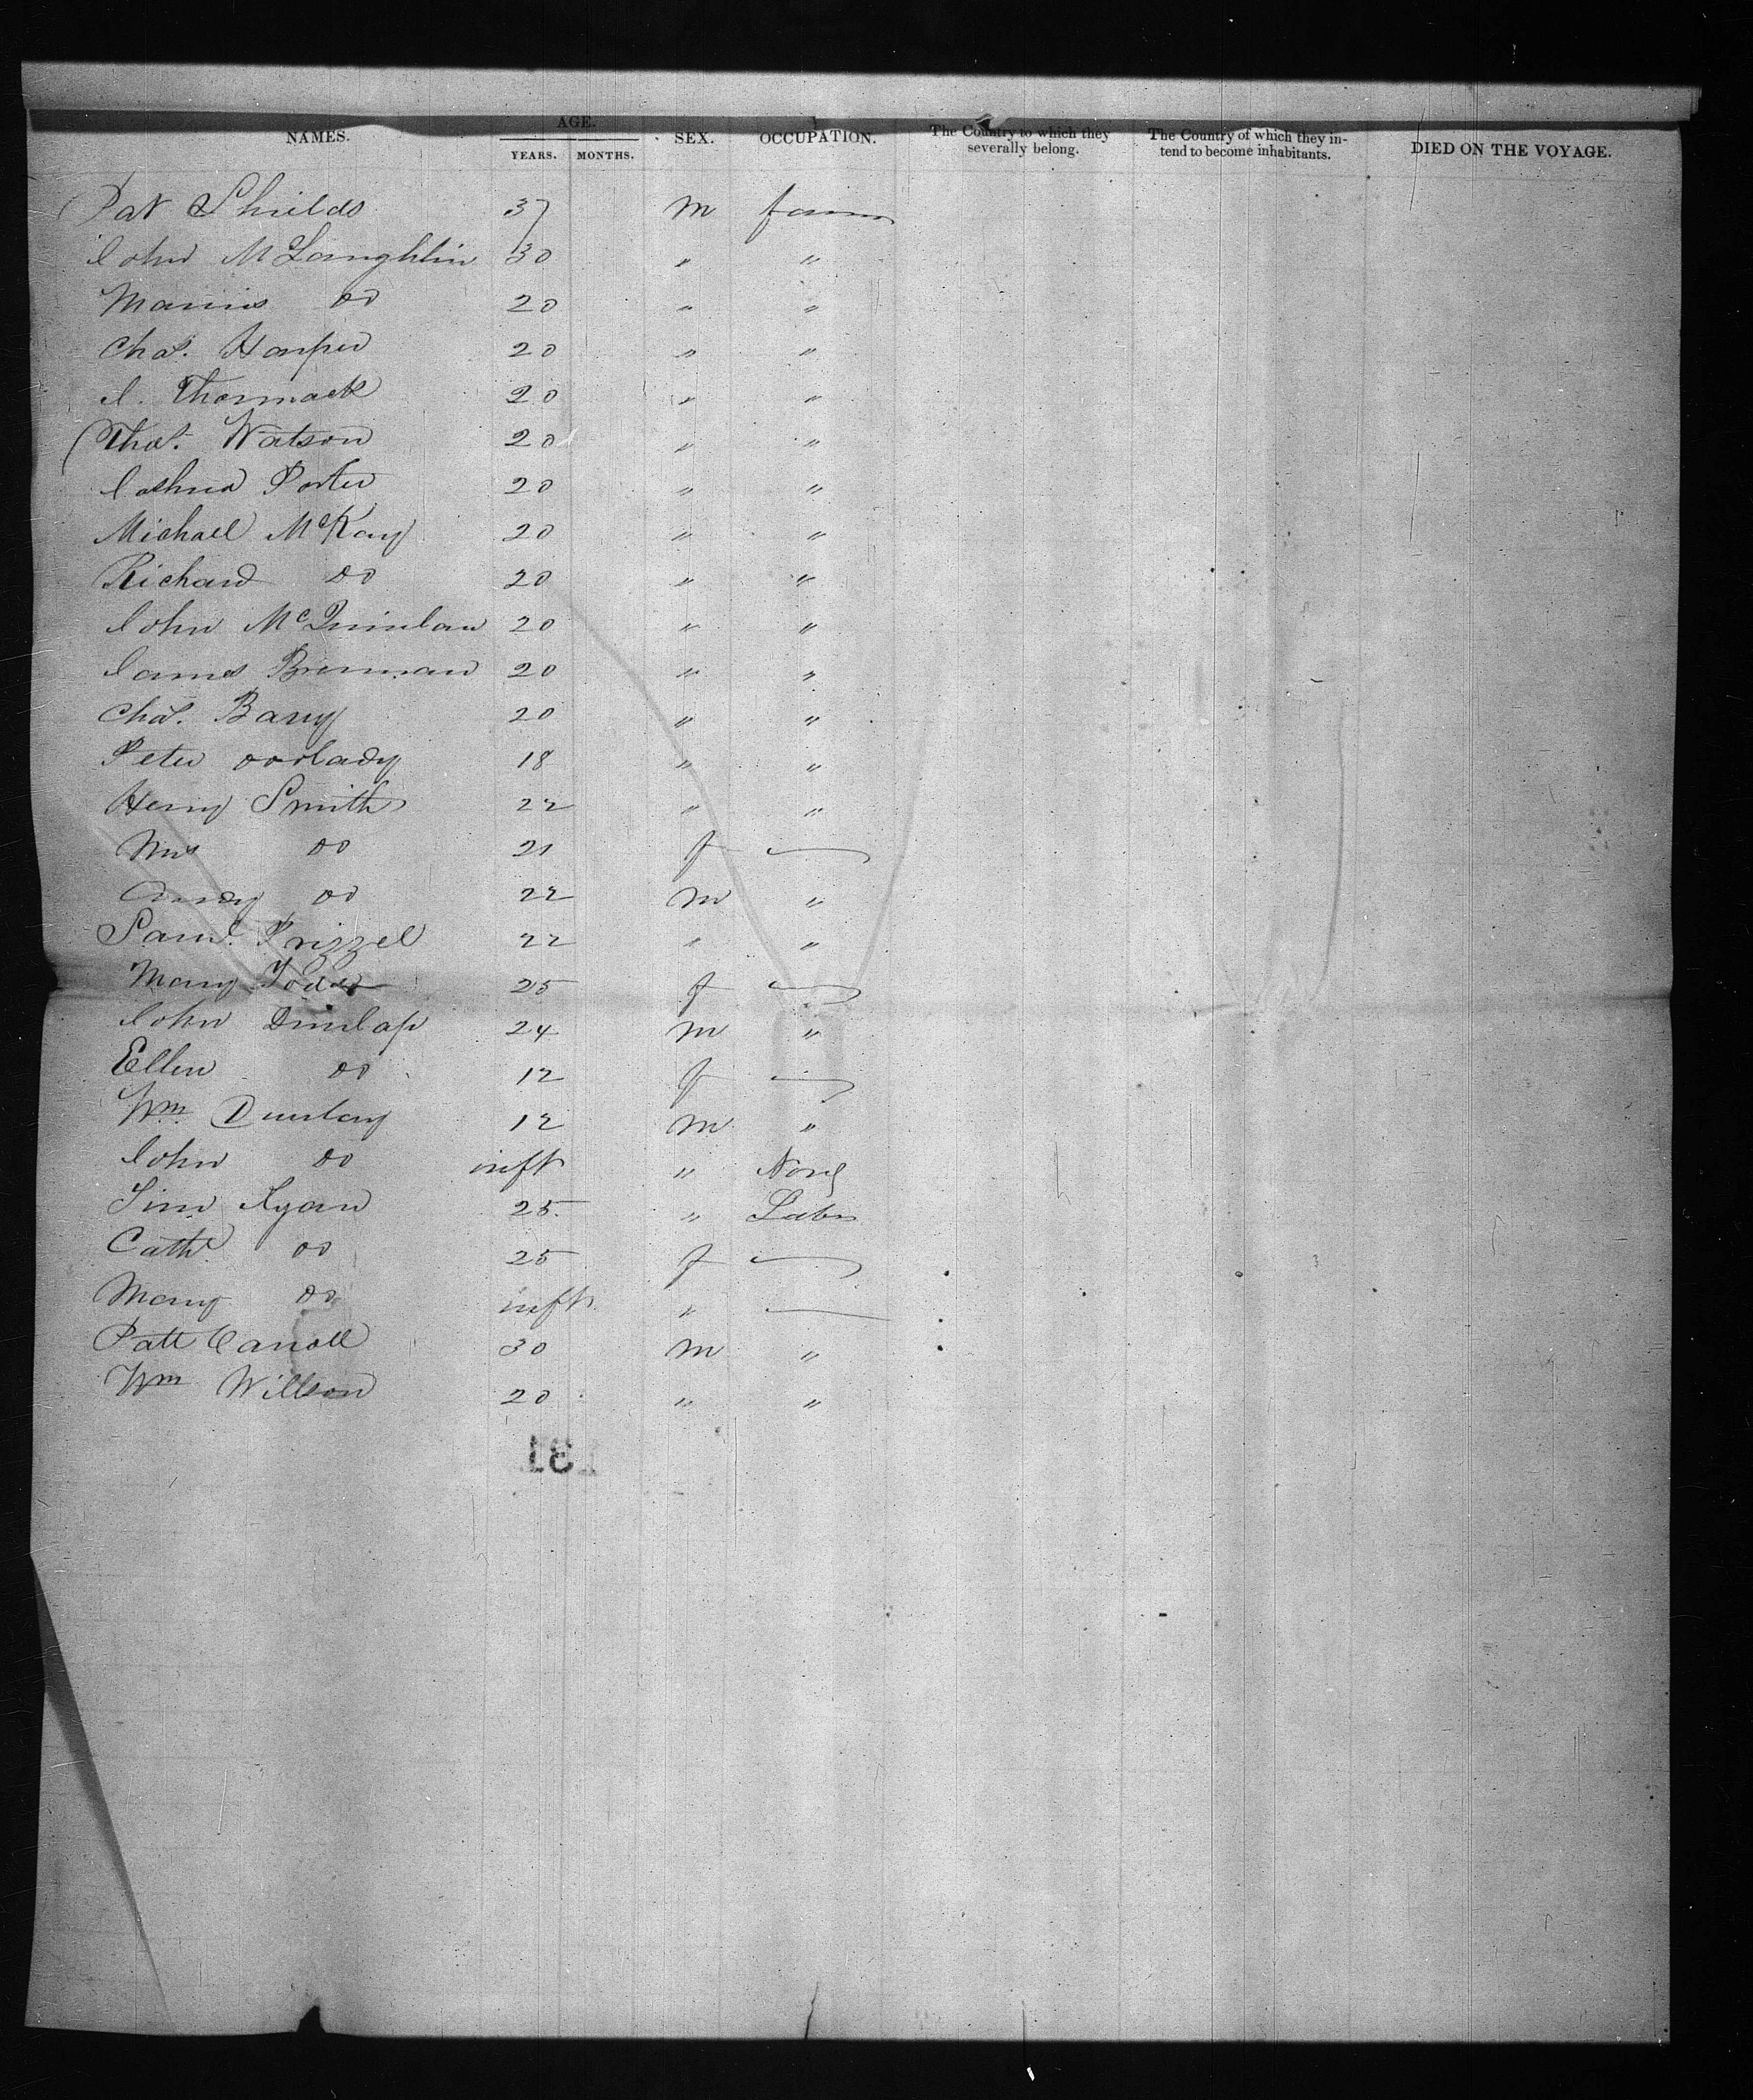 NAMES. AGE. YEARS. MONTHS. SEX. OCCUPATION. The Country to which they severally belong. The Country of which they intend to become inhabitants. DIED ON THE VOYAGE.
Pat Shields 37 m farmr
John McLaughlin 30 " "
Manus do 20 " "
Chas. Harper 20 " "
J. 20 " "
Thos. Watson 20 " "
Joshua Porter 20 " "
Michael McKay 20 " "
Richard do 20 " "
John McQuinlan 20 " "
James Brennan 20 " "
Chas. Barry 20 " "
Peter 18 " "
Henry Smith 22 " "
Mrs do 21 f —
Andy do 22 m "
Saml. Frizzel 22 " "
Mary Todd 25 f —
John Dunlap 24 m "
Ellen do 12 f —
Wm. 12 m "
John do inft " None
Tim Ryan 25 " Labr
Cathe do 25 f —
Mary do inft " —
Patt Carroll 30 m "
Wm Willson 20 " "
181